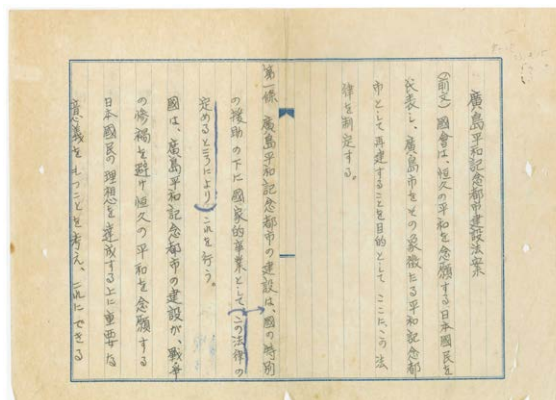 廣島平和記念都市建設法案
(前文) 國會は、恒久の平和を念願する日本國民を
代表し、廣島市をその象徴たる平和記念都
市として再建することを目的として ここに、この法
律を制定する。
第一條 廣島平和記念都市の建設は、國の特別
の援助の下に國家的事業として(この法律の
定めるところにより)これを行う。
國は、廣島平和記念都市の建設が、戰爭
の惨禍を避け恒久の平和を念願する
日本國民の理想を達成する上に重要な
意義をもつことを考え、これにできる